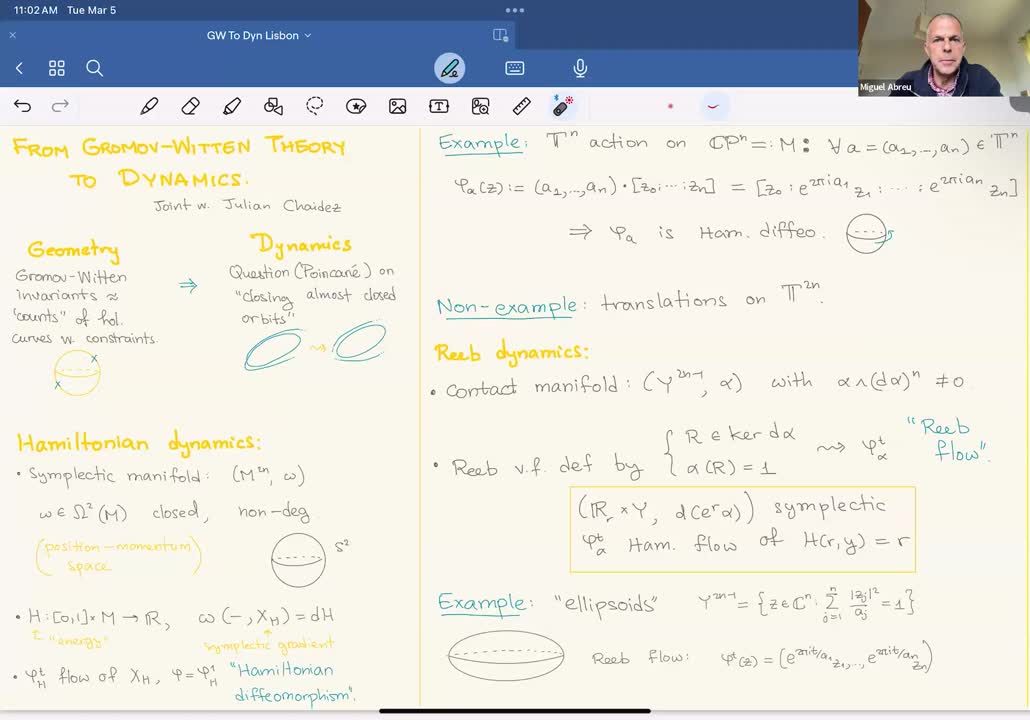 11:02 AM Tue Mar 5
GW To Dyn Lisbon
Miguel Abreu
FROM GROMOV-WITTEN THEORY
TO DYNAMICS.
Joint w. Julian Chaidez
Geometry
Gromov-Witten
invariants ≈
"counts" of hol.
curves w. constraints.
⇒
Dynamics
Question (Poincaré) on
"closing almost closed
orbits"
Hamiltonian dynamics:
• Symplectic manifold: (M²ⁿ, ω)
ω ∈ Ω²(M) closed, non-deg
(position-momentum
space)
S²
• H: [0,1] × M → ℝ, ω(−, X_H) = dH
"energy"
symplectic gradient
• φ_H^t flow of X_H, φ = φ_H^1 "Hamiltonian
diffeomorphism".
Example: 𝕋ⁿ action on ℂPⁿ =: M: ∀ a = (a₁, ..., aₙ) ∈ 𝕋ⁿ
φₐ(z) := (a₁, ..., aₙ) · [z₀ : ... : zₙ] = [z₀ : e^{2πi a₁} z₁ : ... : e^{2πi aₙ} zₙ]
⇒ φₐ is Ham. diffeo.
Non-example: translations on 𝕋²ⁿ.
Reeb dynamics:
• Contact manifold: (Y²ⁿ⁻¹, α) with α ∧ (dα)ⁿ ≠ 0
• Reeb v.f. def by { R ∈ ker dα
α(R) = 1
⇝ φ_α^t "Reeb
flow".
(ℝ_r × Y, d(e^r α)) symplectic
φ_α^t Ham. flow of H(r,y) = r
Example: "ellipsoids" Y²ⁿ⁻¹ = {z ∈ ℂⁿ : ∑_{j=1}^n |z_j|²/a_j = 1}
Reeb flow: φ^t(z) = (e^{2πit/a₁} z₁, ..., e^{2πit/aₙ} zₙ)